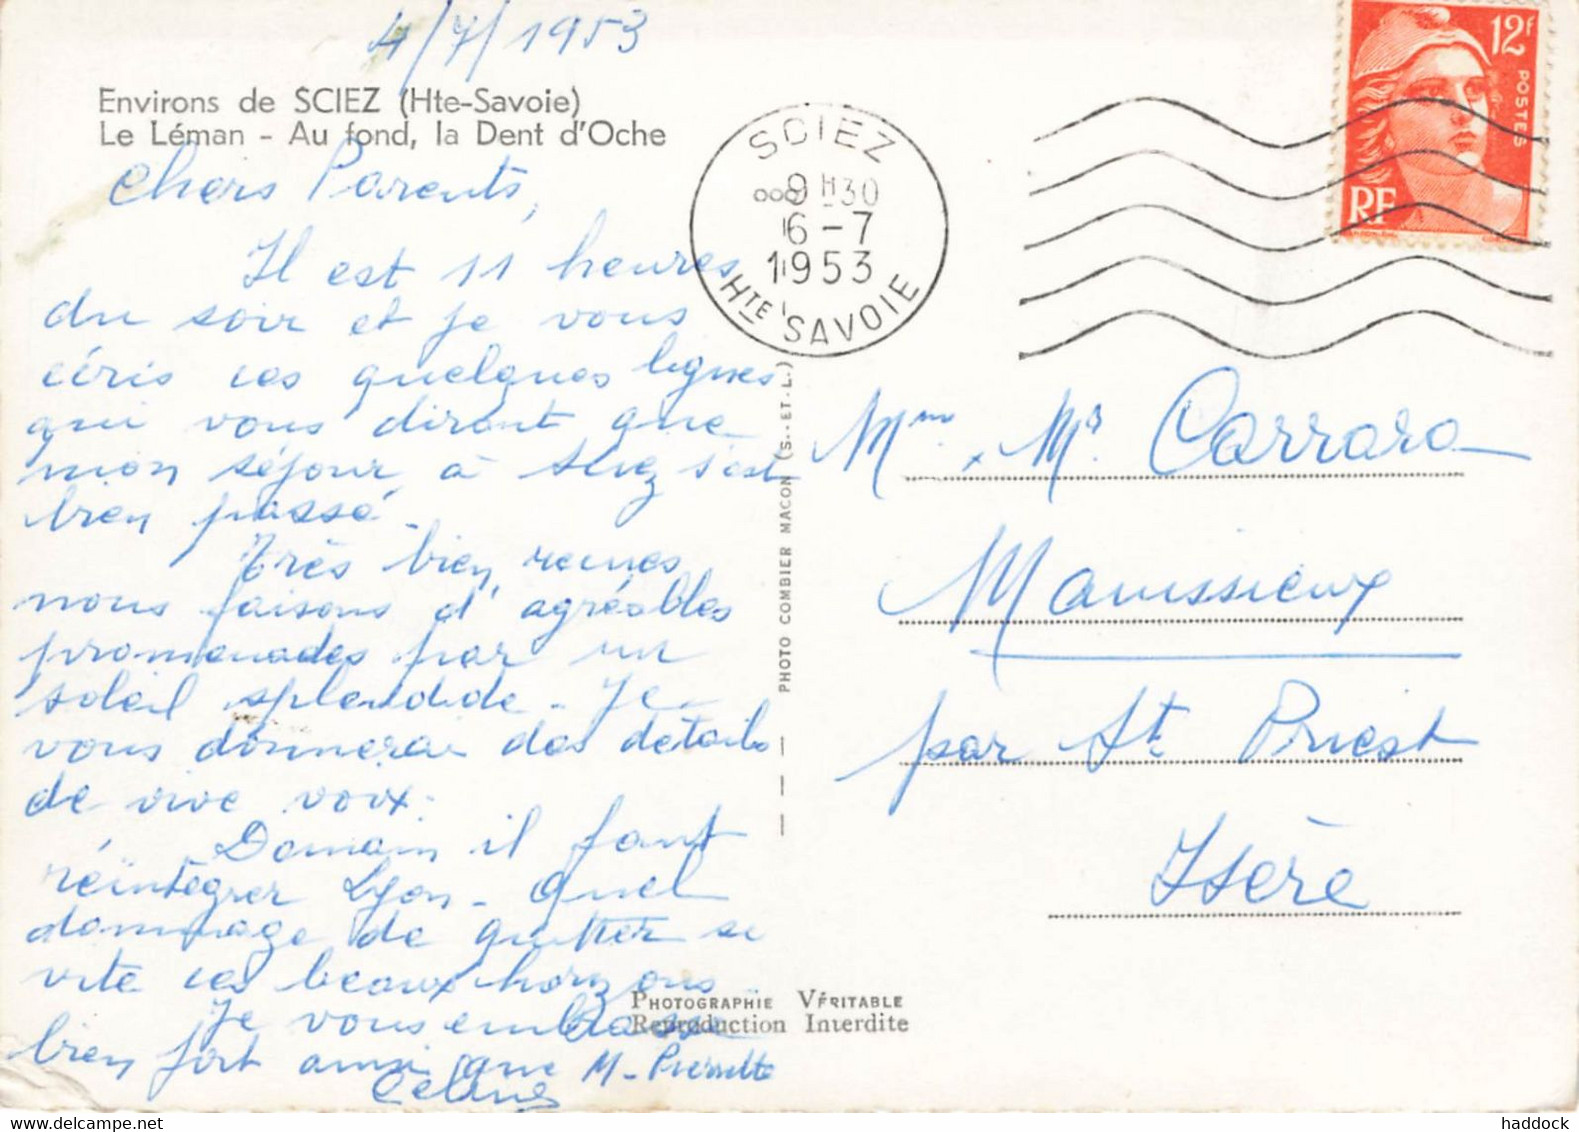 4/7/1953
Environs de SCIEZ (Hte-Savoie)
Le Léman - Au fond, la Dent d'Oche
Chers Parents,
Il est 11 heures
du soir et je vous
écris ces quelques lignes
qui vous diront que
mon séjour à Sciez s'est
bien passé.
Très bien, reçues
nous faisons d'agréables
promenades par un
soleil splendide - Je
vous donnerai des détails
de vive voix.
Demain il faut
réintégrer Lyon - Quel
dommage de quitter si
vite ces beaux horizons
Je vous embrasse
bien fort ainsi que M-Pierrette
SCIEZ
9H30
6-7
1953
HTE SAVOIE
12F
POSTES
RF
PHOTO COMBIER MACON (S.-ET-L.)
Mme, Mr Carrara
Manissieux
par St Priest
Isère
PHOTOGRAPHIE VÉRITABLE
Reproduction Interdite
haddock